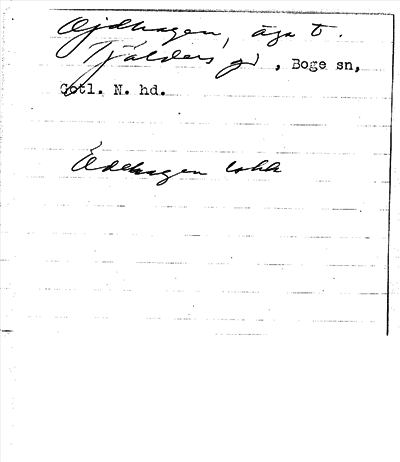 Ojdhagen, äga t.
Tjälders gd, Boge sn,
Gotl. N. hd.
Ödehagen